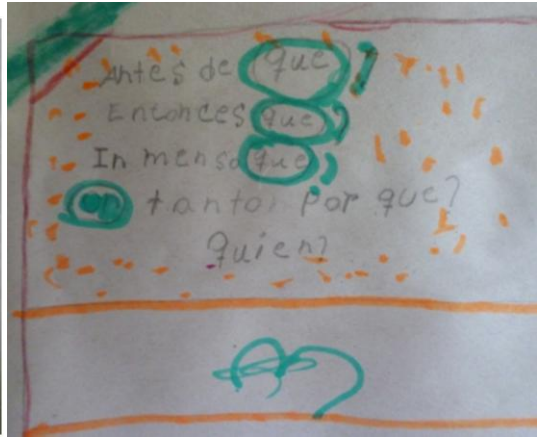 Antes de que,
Entonces que,
Inmenso que,
En tanto, por que?
Quien?